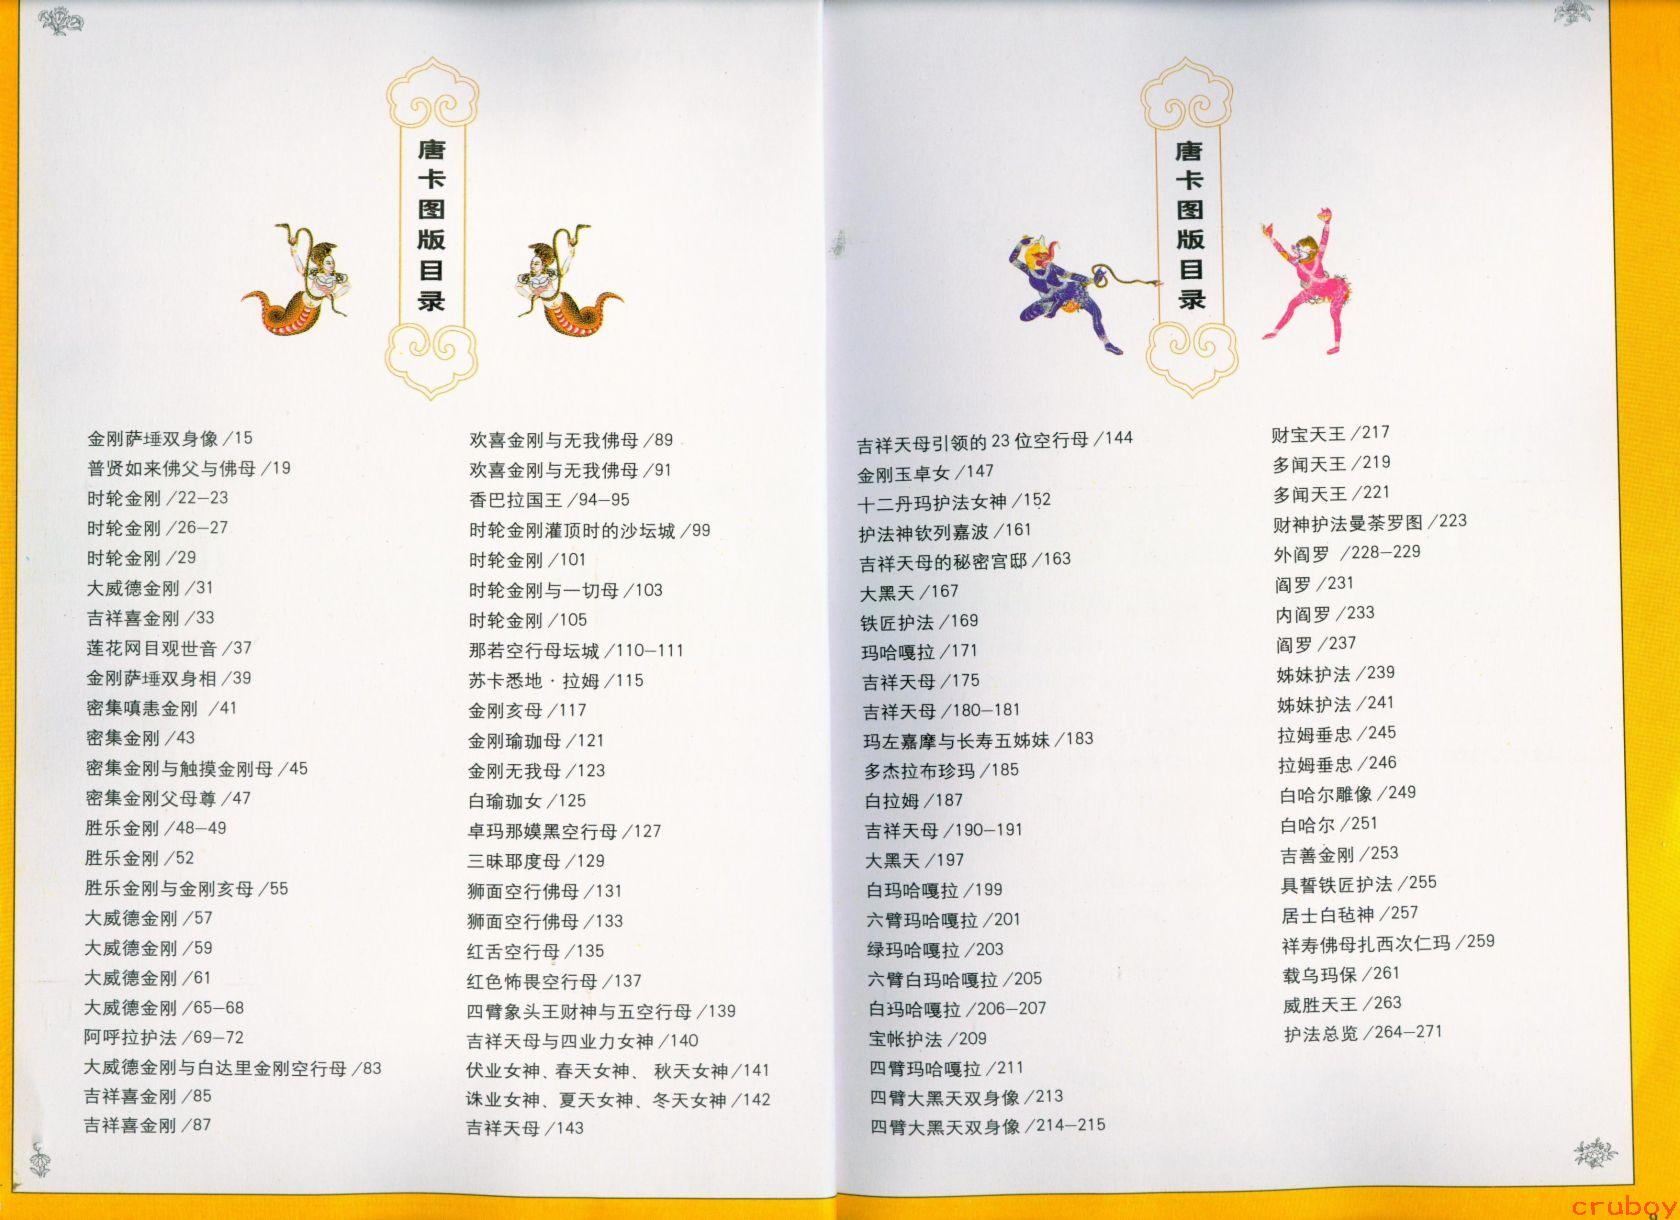 唐卡图版目录
金刚萨埵双身像/15
普贤如来佛父与佛母/19
时轮金刚/22—23
时轮金刚/26—27
时轮金刚/29
大威德金刚/31
吉祥喜金刚/33
莲花网目观世音/37
金刚萨埵双身相/39
密集嗔恚金刚 /41
密集金刚/43
密集金刚与触摸金刚母/45
密集金刚父母尊/47
胜乐金刚/48—49
胜乐金刚/52
胜乐金刚与金刚亥母/55
大威德金刚/57
大威德金刚/59
大威德金刚/61
大威德金刚/65—68
阿呼拉护法/69—72
大威德金刚与白达里金刚空行母/83
吉祥喜金刚/85
吉祥喜金刚/87
欢喜金刚与无我佛母/89
欢喜金刚与无我佛母/91
香巴拉国王/94—95
时轮金刚灌顶时的沙坛城/99
时轮金刚/101
时轮金刚与一切母/103
时轮金刚/105
那若空行母坛城/110—111
苏卡悉地·拉姆/115
金刚亥母/117
金刚瑜珈母/121
金刚无我母/123
白瑜珈女/125
卓玛那嫫黑空行母/127
三昧耶度母/129
狮面空行佛母/131
狮面空行佛母/133
红舌空行母/135
红色怖畏空行母/137
四臂象头王财神与五空行母/139
吉祥天母与四业力女神/140
伏业女神、春天女神、 秋天女神/141
诛业女神、夏天女神、冬天女神/142
吉祥天母/143
唐卡图版目录
吉祥天母引领的23位空行母/144
金刚玉卓女/147
十二丹玛护法女神/152
护法神钦列嘉波/161
吉祥天母的秘密宫邸/163
大黑天/167
铁匠护法/169
玛哈嘎拉/171
吉祥天母/175
吉祥天母/180—181
玛左嘉摩与长寿五姊妹/183
多杰拉布珍玛/185
白拉姆/187
吉祥天母/190—191
大黑天/197
白玛哈嘎拉/199
六臂玛哈嘎拉/201
绿玛哈嘎拉/203
六臂白玛哈嘎拉/205
白玛哈嘎拉/206—207
宝帐护法/209
四臂玛哈嘎拉/211
四臂大黑天双身像/213
四臂大黑天双身像/214—215
财宝天王/217
多闻天王/219
多闻天王/221
财神护法曼荼罗图/223
外阎罗 /228—229
阎罗/231
内阎罗/233
阎罗/237
姊妹护法/239
姊妹护法/241
拉姆垂忠/245
拉姆垂忠/246
白哈尔雕像/249
白哈尔/251
吉善金刚/253
具誓铁匠护法/255
居士白毡神/257
祥寿佛母扎西次仁玛/259
载乌玛保/261
威胜天王/263
护法总览/264—271
cruboy